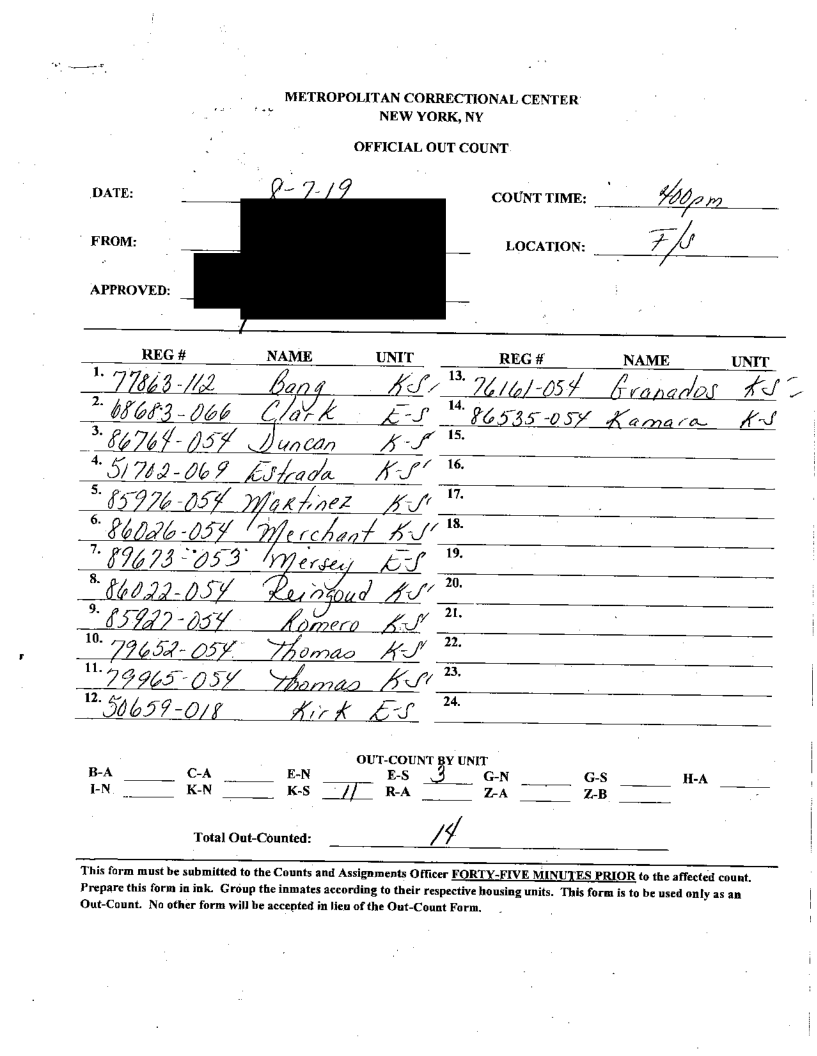 METROPOLITAN CORRECTIONAL CENTER
NEW YORK, NY
OFFICIAL OUT COUNT
DATE: 8-7-19 COUNT TIME: 400pm
FROM: LOCATION: F/S
APPROVED:
REG # NAME UNIT REG # NAME UNIT
1. 77863-112 Bang K-S 13. 76161-054 Granados K-S
2. 68683-066 Clark E-S 14. 86535-054 Kamara K-S
3. 86764-054 Duncan K-S 15.
4. 51702-069 Estrada K-S 16.
5. 85976-054 Martinez K-S 17.
6. 86026-054 Merchant K-S 18.
7. 89673-053 Mersey E-S 19.
8. 86022-054 Reingoud K-S 20.
9. 85927-054 Romero K-S 21.
10. 79652-054 Thomas K-S 22.
11. 79965-054 Thomas K-S 23.
12. 50659-018 Kirk E-S 24.
OUT-COUNT BY UNIT
B-A C-A E-N E-S 3 G-N G-S H-A
I-N K-N K-S 11 R-A Z-A Z-B
Total Out-Counted: 14
This form must be submitted to the Counts and Assignments Officer FORTY-FIVE MINUTES PRIOR to the affected count.
Prepare this form in ink. Group the inmates according to their respective housing units. This form is to be used only as an
Out-Count. No other form will be accepted in lieu of the Out-Count Form.